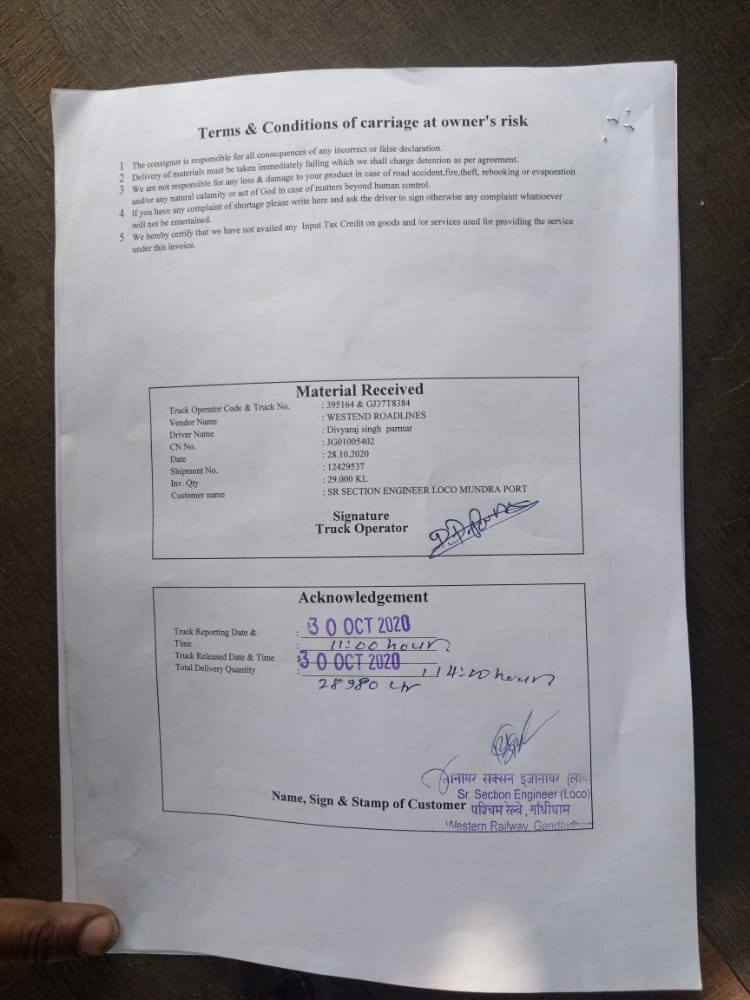 Terms & Conditions of carriage at owner's risk
1 The consignor is responsible for all consequences of any incorrect or false declaration.
2 Delivery of materials must be taken immediately failing which we shall charge detention as per agreement.
3 We are not responsible for any loss & damage to your product in case of road accident,fire,theft, rebooking or evaporation
and/or any natural calamity or act of God in case of matters beyond human control.
4 If you have any complaint of shortage please write here and ask the driver to sign otherwise any complaint whatsoever
will not be entertained.
5 We hereby certify that we have not availed any Input Tax Credit on goods and /or services used for providing the service
under this invoice.
Material Received
Truck Operator Code & Truck No. : 395164 & GJ37T8384
Vendor Name : WESTEND ROADLINES
Driver Name : Divyaraj singh parmar
CN No. : JG01005402
Date : 28.10.2020
Shipment No. : 12429537
Inv. Qty : 29.000 KL
Customer name : SR SECTION ENGINEER LOCO MUNDRA PORT
Signature
Truck Operator
Acknowledgement
Truck Reporting Date & : 30 OCT 2020
Time : 11:00 hours
Truck Released Date & Time : 30 OCT 2020
Total Delivery Quantity 28980 Ltr
सेक्सन इंजीनियर
Sr. Section Engineer (Loco)
Name, Sign & Stamp of Customer पश्चिम रेल्वे, गाँधीधाम
Western Railway Gandhidham